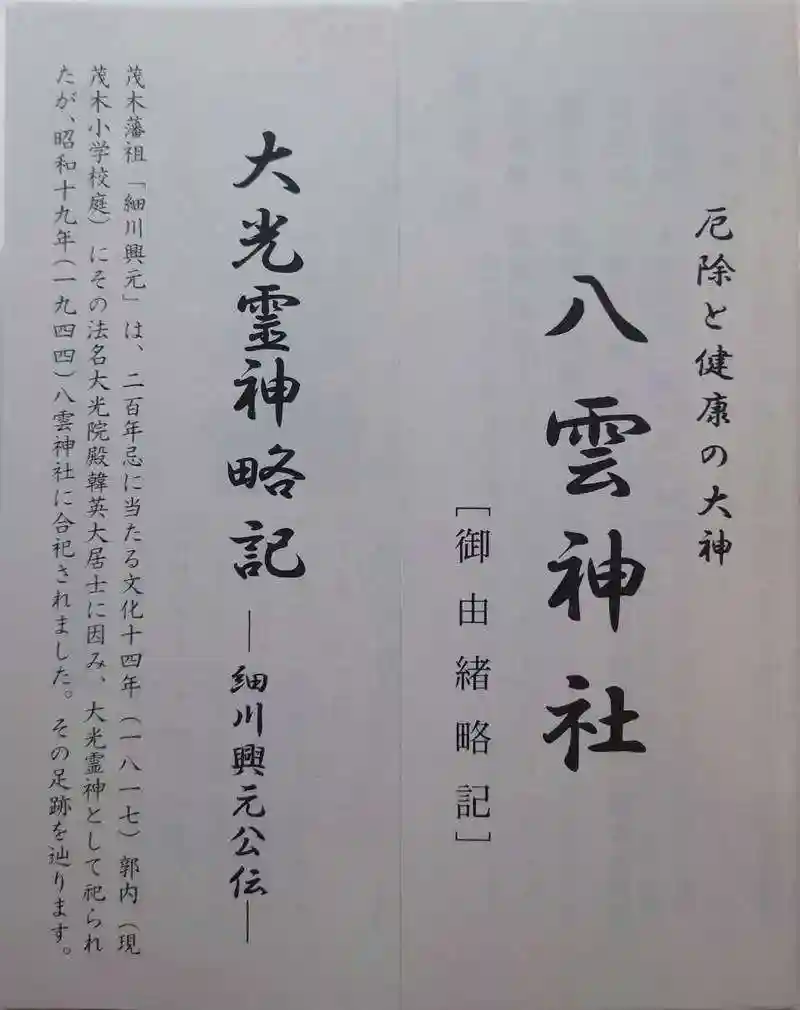 厄除と健康の大神
八雲神社
［御由緒略記］
大光霊神略記 ―細川興元公伝―
茂木藩祖「細川興元」は、二百年忌に当たる文化十四年（一八一七）郭内（現
茂木小学校庭）にその法名大光院殿韓英大居士に因み、大光霊神として祀られ
たが、昭和十九年（一九四四）八雲神社に合祀されました。その足跡を辿ります。